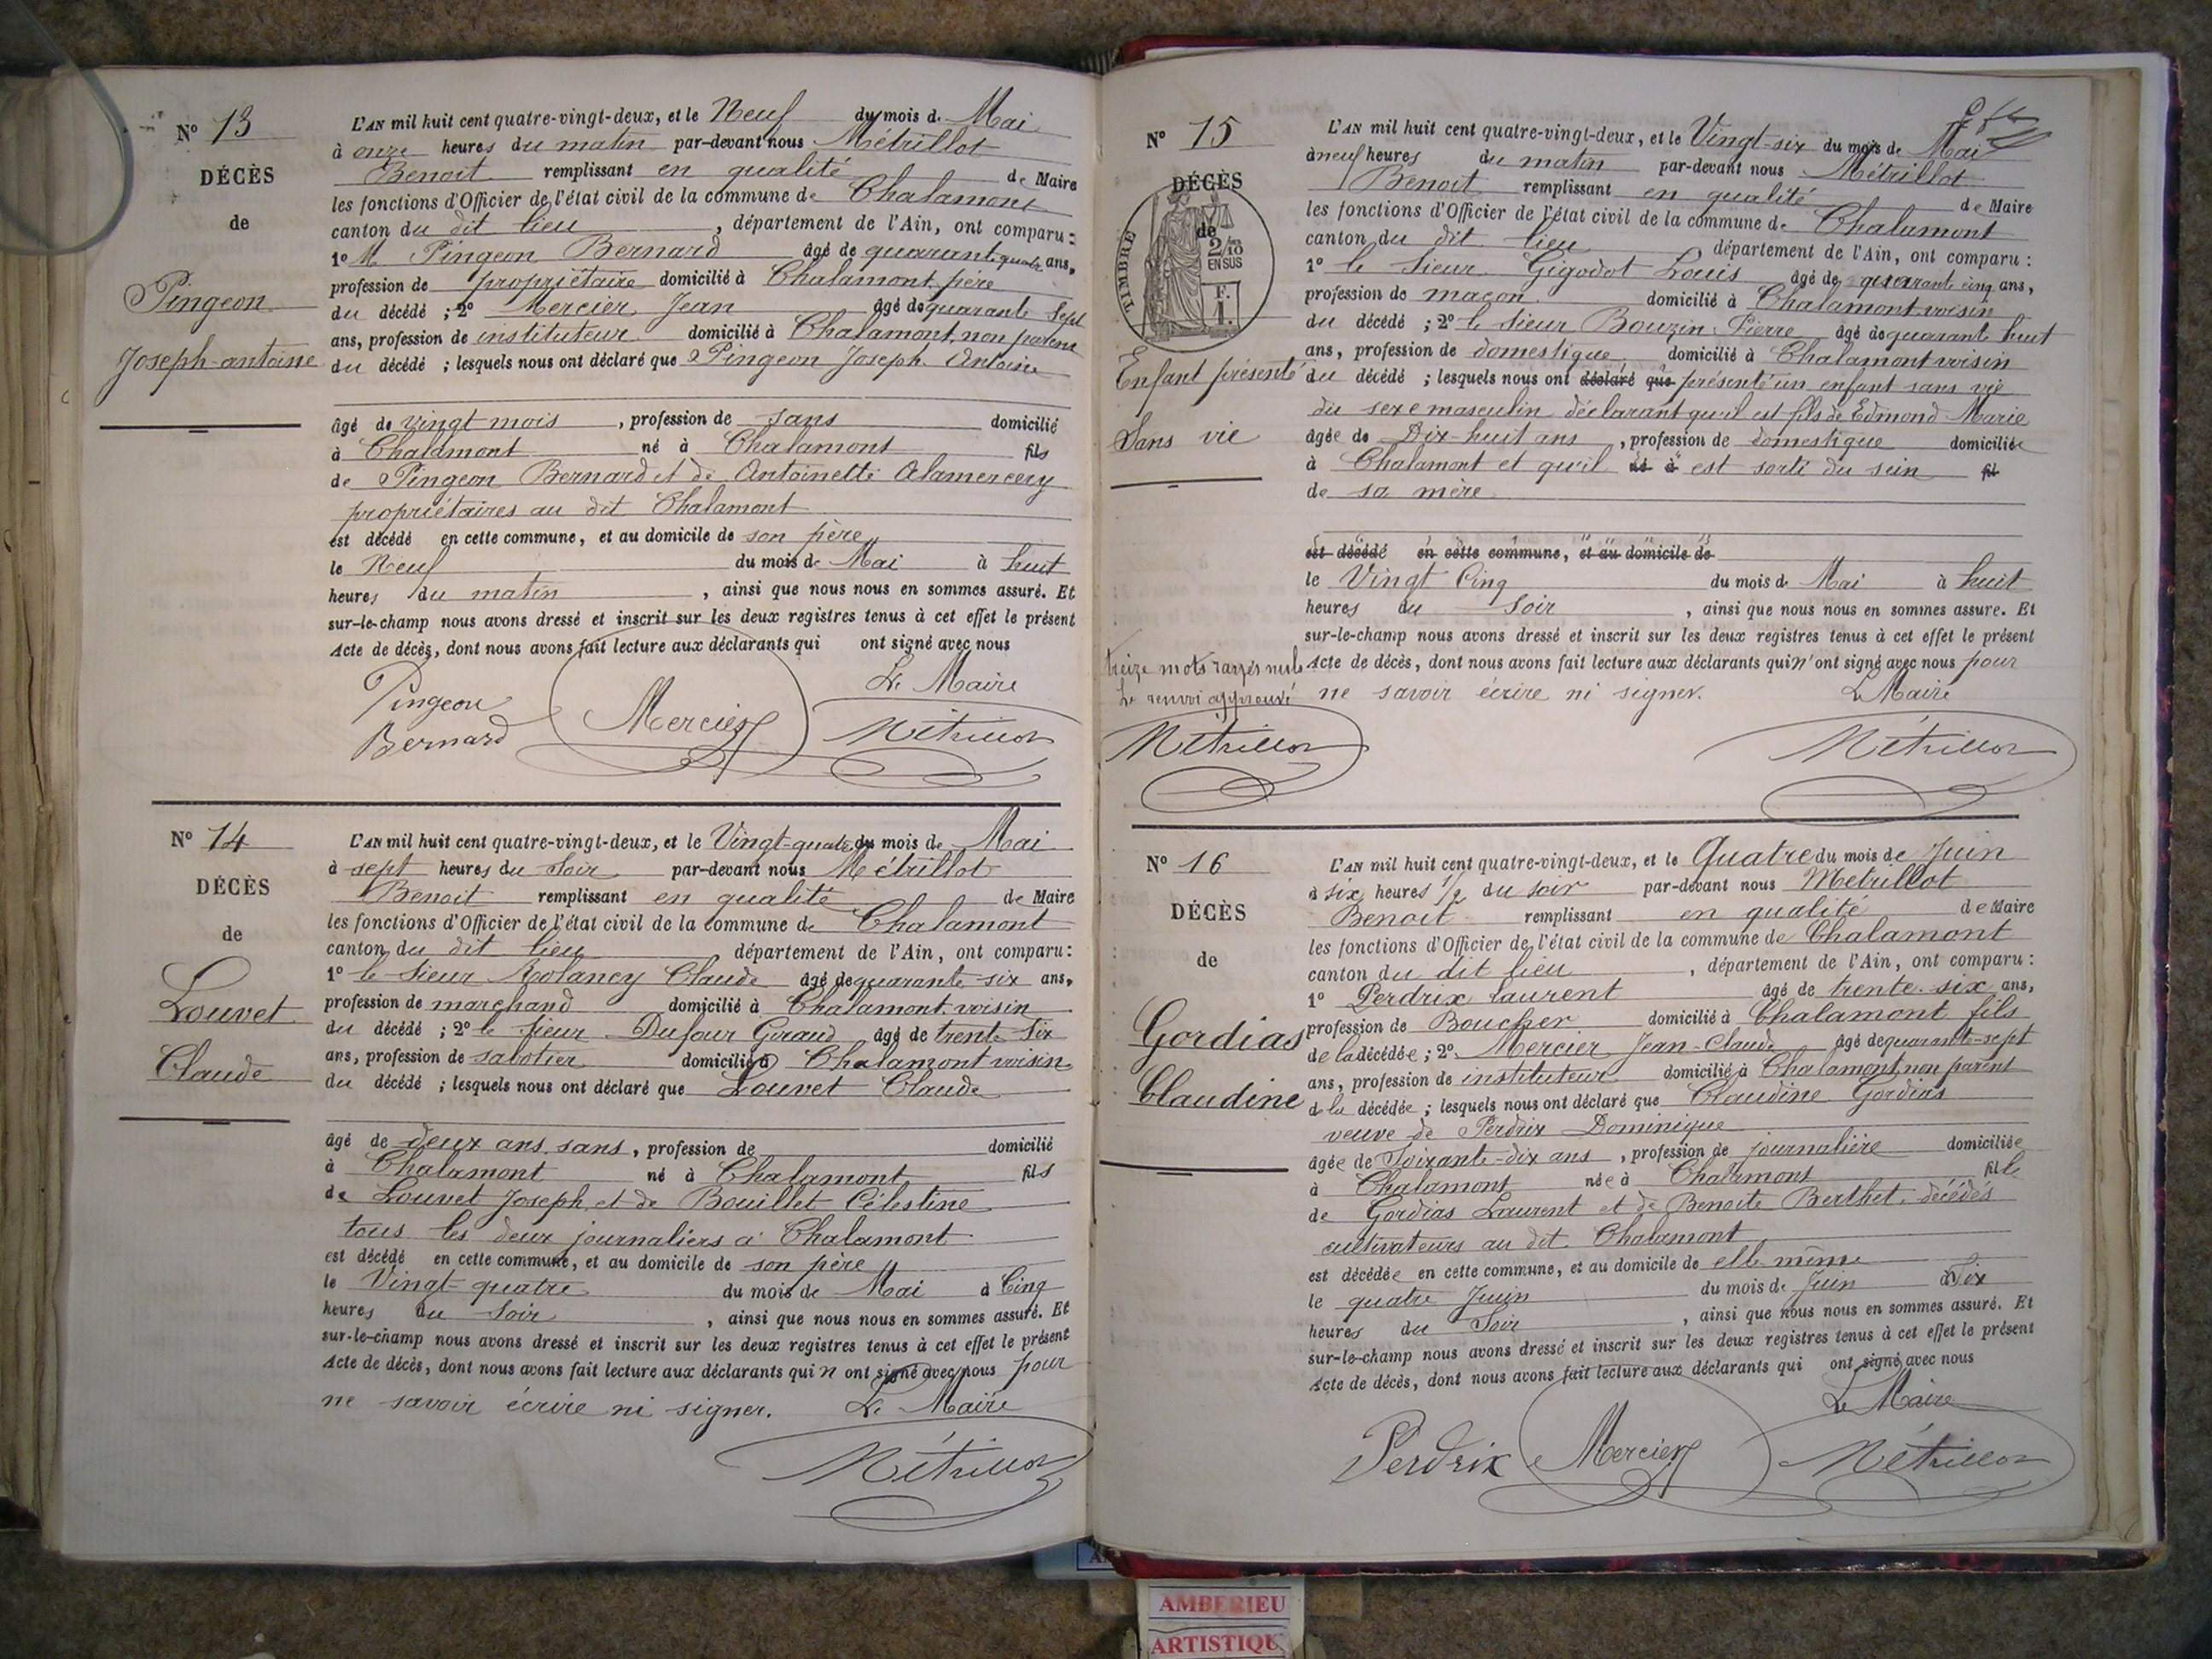 N° 13
DÉCÈS
de
Pingeon
Joseph-antoine
L'AN mil huit cent quatre-vingt-deux, et le Neuf du mois de Mai
à onze heures du matin par-devant nous Métrillot
Benoit remplissant en qualité de Maire
les fonctions d'Officier de l'état civil de la commune de Chalamont
canton du dit lieu, département de l'Ain, ont comparu :
1° M Pingeon Bernard âgé de quarante quatre ans,
profession de propriétaire domicilié à Chalamont, père
du décédé ; 2° Mercier Jean âgé de quarante Sept
ans, profession de instituteur domicilié à Chalamont, non parent
du décédé ; lesquels nous ont déclaré que Pingeon Joseph Antoine
âgé de vingt mois, profession de sans domicilié
à Chalamont né à Chalamont fils
de Pingeon Bernard et de Antoinette Alamercery
propriétaires au dit Chalamont
est décédé en cette commune, et au domicile de son père
le Neuf du mois de Mai à huit
heures du matin, ainsi que nous nous en sommes assuré. Et
sur-le-champ nous avons dressé et inscrit sur les deux registres tenus à cet effet le présent
Acte de décès, dont nous avons fait lecture aux déclarants qui ont signé avec nous
Le Maire
Pingeon
Bernard
Mercier
Métrillot
N° 14
DÉCÈS
de
Louvet
Claude
L'AN mil huit cent quatre-vingt-deux, et le Vingt-quatre du mois de Mai
à sept heures du Soir par-devant nous Métrillot
Benoit remplissant en qualité de Maire
les fonctions d'Officier de l'état civil de la commune de Chalamont
canton du dit lieu département de l'Ain, ont comparu :
1° le Sieur Rolancy Claude âgé de quarante-six ans,
profession de marchand domicilié à Chalamont, voisin
du décédé ; 2° le sieur Dufour Giraud âgé de trente Six
ans, profession de sabotier domicilié à Chalamont voisin
du décédé ; lesquels nous ont déclaré que Louvet Claude
âgé de deux ans sans, profession de domicilié
à Chalamont né à Chalamont fils
de Louvet Joseph, et de Bouillet Célestine
tous les deux journaliers à Chalamont
est décédé en cette commune, et au domicile de son père
le Vingt-quatre du mois de Mai à Cinq
heures du Soir, ainsi que nous nous en sommes assuré. Et
sur-le-champ nous avons dressé et inscrit sur les deux registres tenus à cet effet le présent
Acte de décès, dont nous avons fait lecture aux déclarants qui n'ont signé avec nous pour
ne savoir écrire ni signer. Le Maire
Métrillot
N° 15
DÉCÈS
de
TIMBRE
2/10
EN SUS
F.
1.
Enfant présenté
Sans vie
L'AN mil huit cent quatre-vingt-deux, et le Vingt-six du mois de Mai
à neuf heures du matin par-devant nous Métrillot
Benoit remplissant en qualité de Maire
les fonctions d'Officier de l'état civil de la commune de Chalamont
canton du dit lieu département de l'Ain, ont comparu :
1° le Sieur Gigodot Louis âgé de quarante cinq ans,
profession de maçon domicilié à Chalamont voisin
du décédé ; 2° le Sieur Bouzin Pierre âgé de quarante huit
ans, profession de domestique domicilié à Chalamont voisin
du décédé ; lesquels nous ont déclaré que présenté un enfant sans vie
du sexe masculin déclarant qu'il est fils de Edmond Marie
âgée de Dix-huit ans, profession de domestique domiciliée
à Chalamont et qu'il né à est sorti du sein fil
de sa mère
est décédé en cette commune, et au domicile de
le Vingt Cinq du mois de Mai à huit
heures du Soir, ainsi que nous nous en sommes assuré. Et
sur-le-champ nous avons dressé et inscrit sur les deux registres tenus à cet effet le présent
Acte de décès, dont nous avons fait lecture aux déclarants qui n'ont signé avec nous pour
ne savoir écrire ni signer. Le Maire
treize mots rayés nuls
Le renvoi approuvé
Métrillot
Métrillot
N° 16
DÉCÈS
de
Gordias
Claudine
L'AN mil huit cent quatre-vingt-deux, et le Quatre du mois de Juin
à six heures 1/2 du soir par-devant nous Métrillot
Benoit remplissant en qualité de Maire
les fonctions d'Officier de l'état civil de la commune de Chalamont
canton du dit lieu, département de l'Ain, ont comparu :
1° Perdrix laurent âgé de trente-six ans,
profession de Boucher domicilié à Chalamont fils
de la décédée ; 2° Mercier Jean-Claude âgé de quarante-sept
ans, profession de instituteur domicilié à Chalamont, non parent
d la décédée ; lesquels nous ont déclaré que Claudine Gordias
veuve de Perdrix Dominique
âgée de Soixante-dix ans, profession de journalière domiciliée
à Chalamont née à Chalamont fille
de Gordias Laurent et de Benoite Berthet, décédés
cultivateurs au dit Chalamont
est décédée en cette commune, et au domicile de elle même
le quatre Juin du mois de Juin à Six
heures du Soir, ainsi que nous nous en sommes assuré. Et
sur-le-champ nous avons dressé et inscrit sur les deux registres tenus à cet effet le présent
Acte de décès, dont nous avons fait lecture aux déclarants qui ont signé avec nous
Le Maire
Perdrix Mercier Métrillot
AMBERIEU
ARTISTIQU